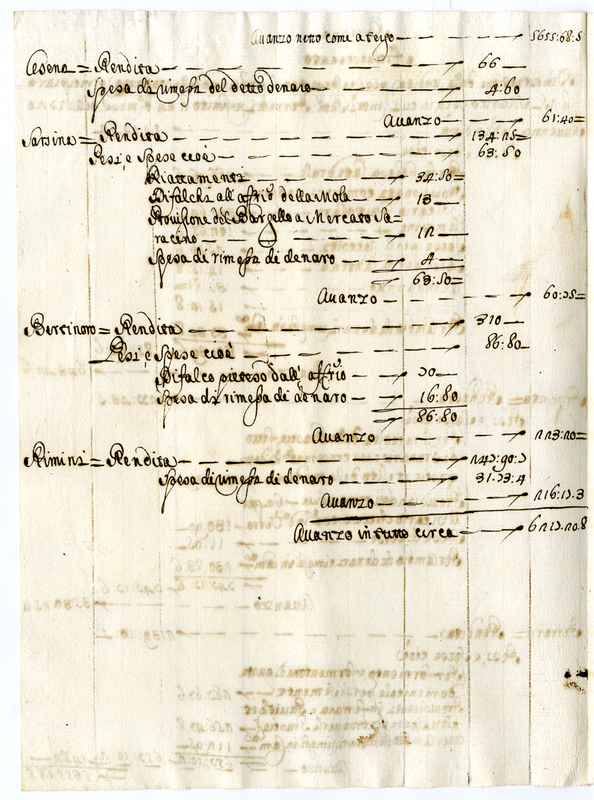 Avanzo netto come a tergo 5655:68:5
Cesena = Rendita 66
Spesa di rimessa del detto denaro 4:60
Avanzo 61:40=
Sarsina = Rendita 124:25=
Pesi, e Spese cioè 63:50
Riattamenti 34:50=
Difalchi all'affrio della Mola 13
Provisione del Bargello a Mercato Sa=
racino 12
Spesa di rimessa di denaro 4
63:50=
Avanzo 60:75=
Bertinoro = Rendita 310
Pesi, e Spese cioè 86:80
Difalco preteso dall'affrio 70
Spesa di rimessa di denaro 16:80
86:80
Avanzo 223:20=
Rimini = Rendita 247:90:7
Spesa di rimessa di denaro 31:73:4
Avanzo 216:17:3
Avanzo in tutto circa 6217:20:8